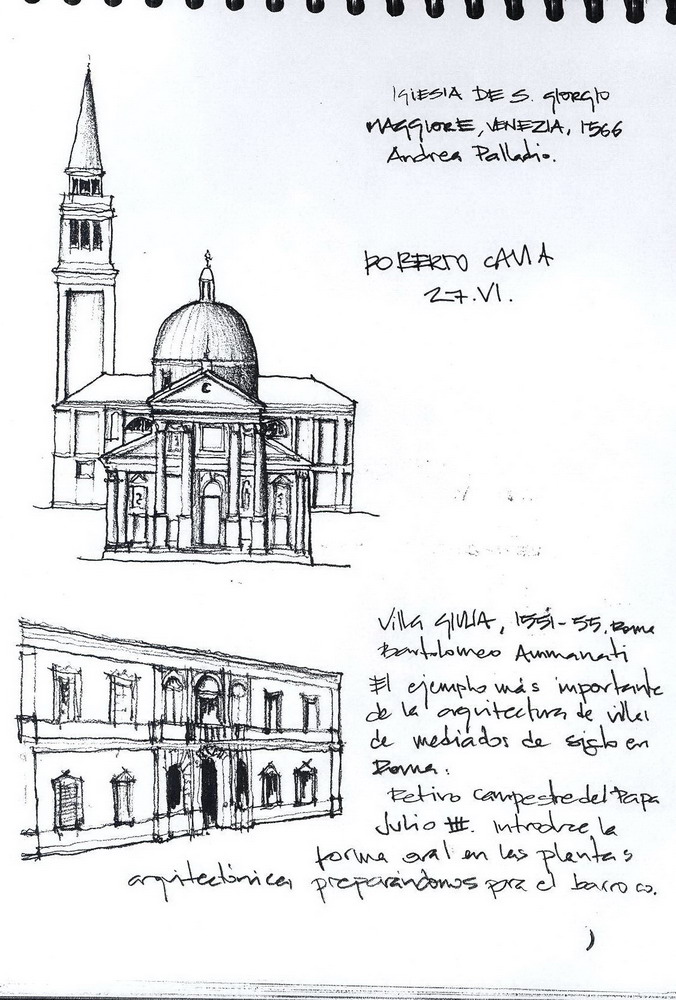 IGLESIA DE S. GIORGIO
MAGGIORE, VENEZIA, 1566
Andrea Palladio.
ROBERTO
27.VI.
Villa GIULIA, 1551-55, Roma
Bartolomeo Ammanati
El ejemplo más importante
de la arquitectura de villas
de mediados de siglo en
Roma.
Retiro campestre del Papa
Julio III. Introduce la
forma oval en las plantas
arquitectónicas preparándonos para el barroco.